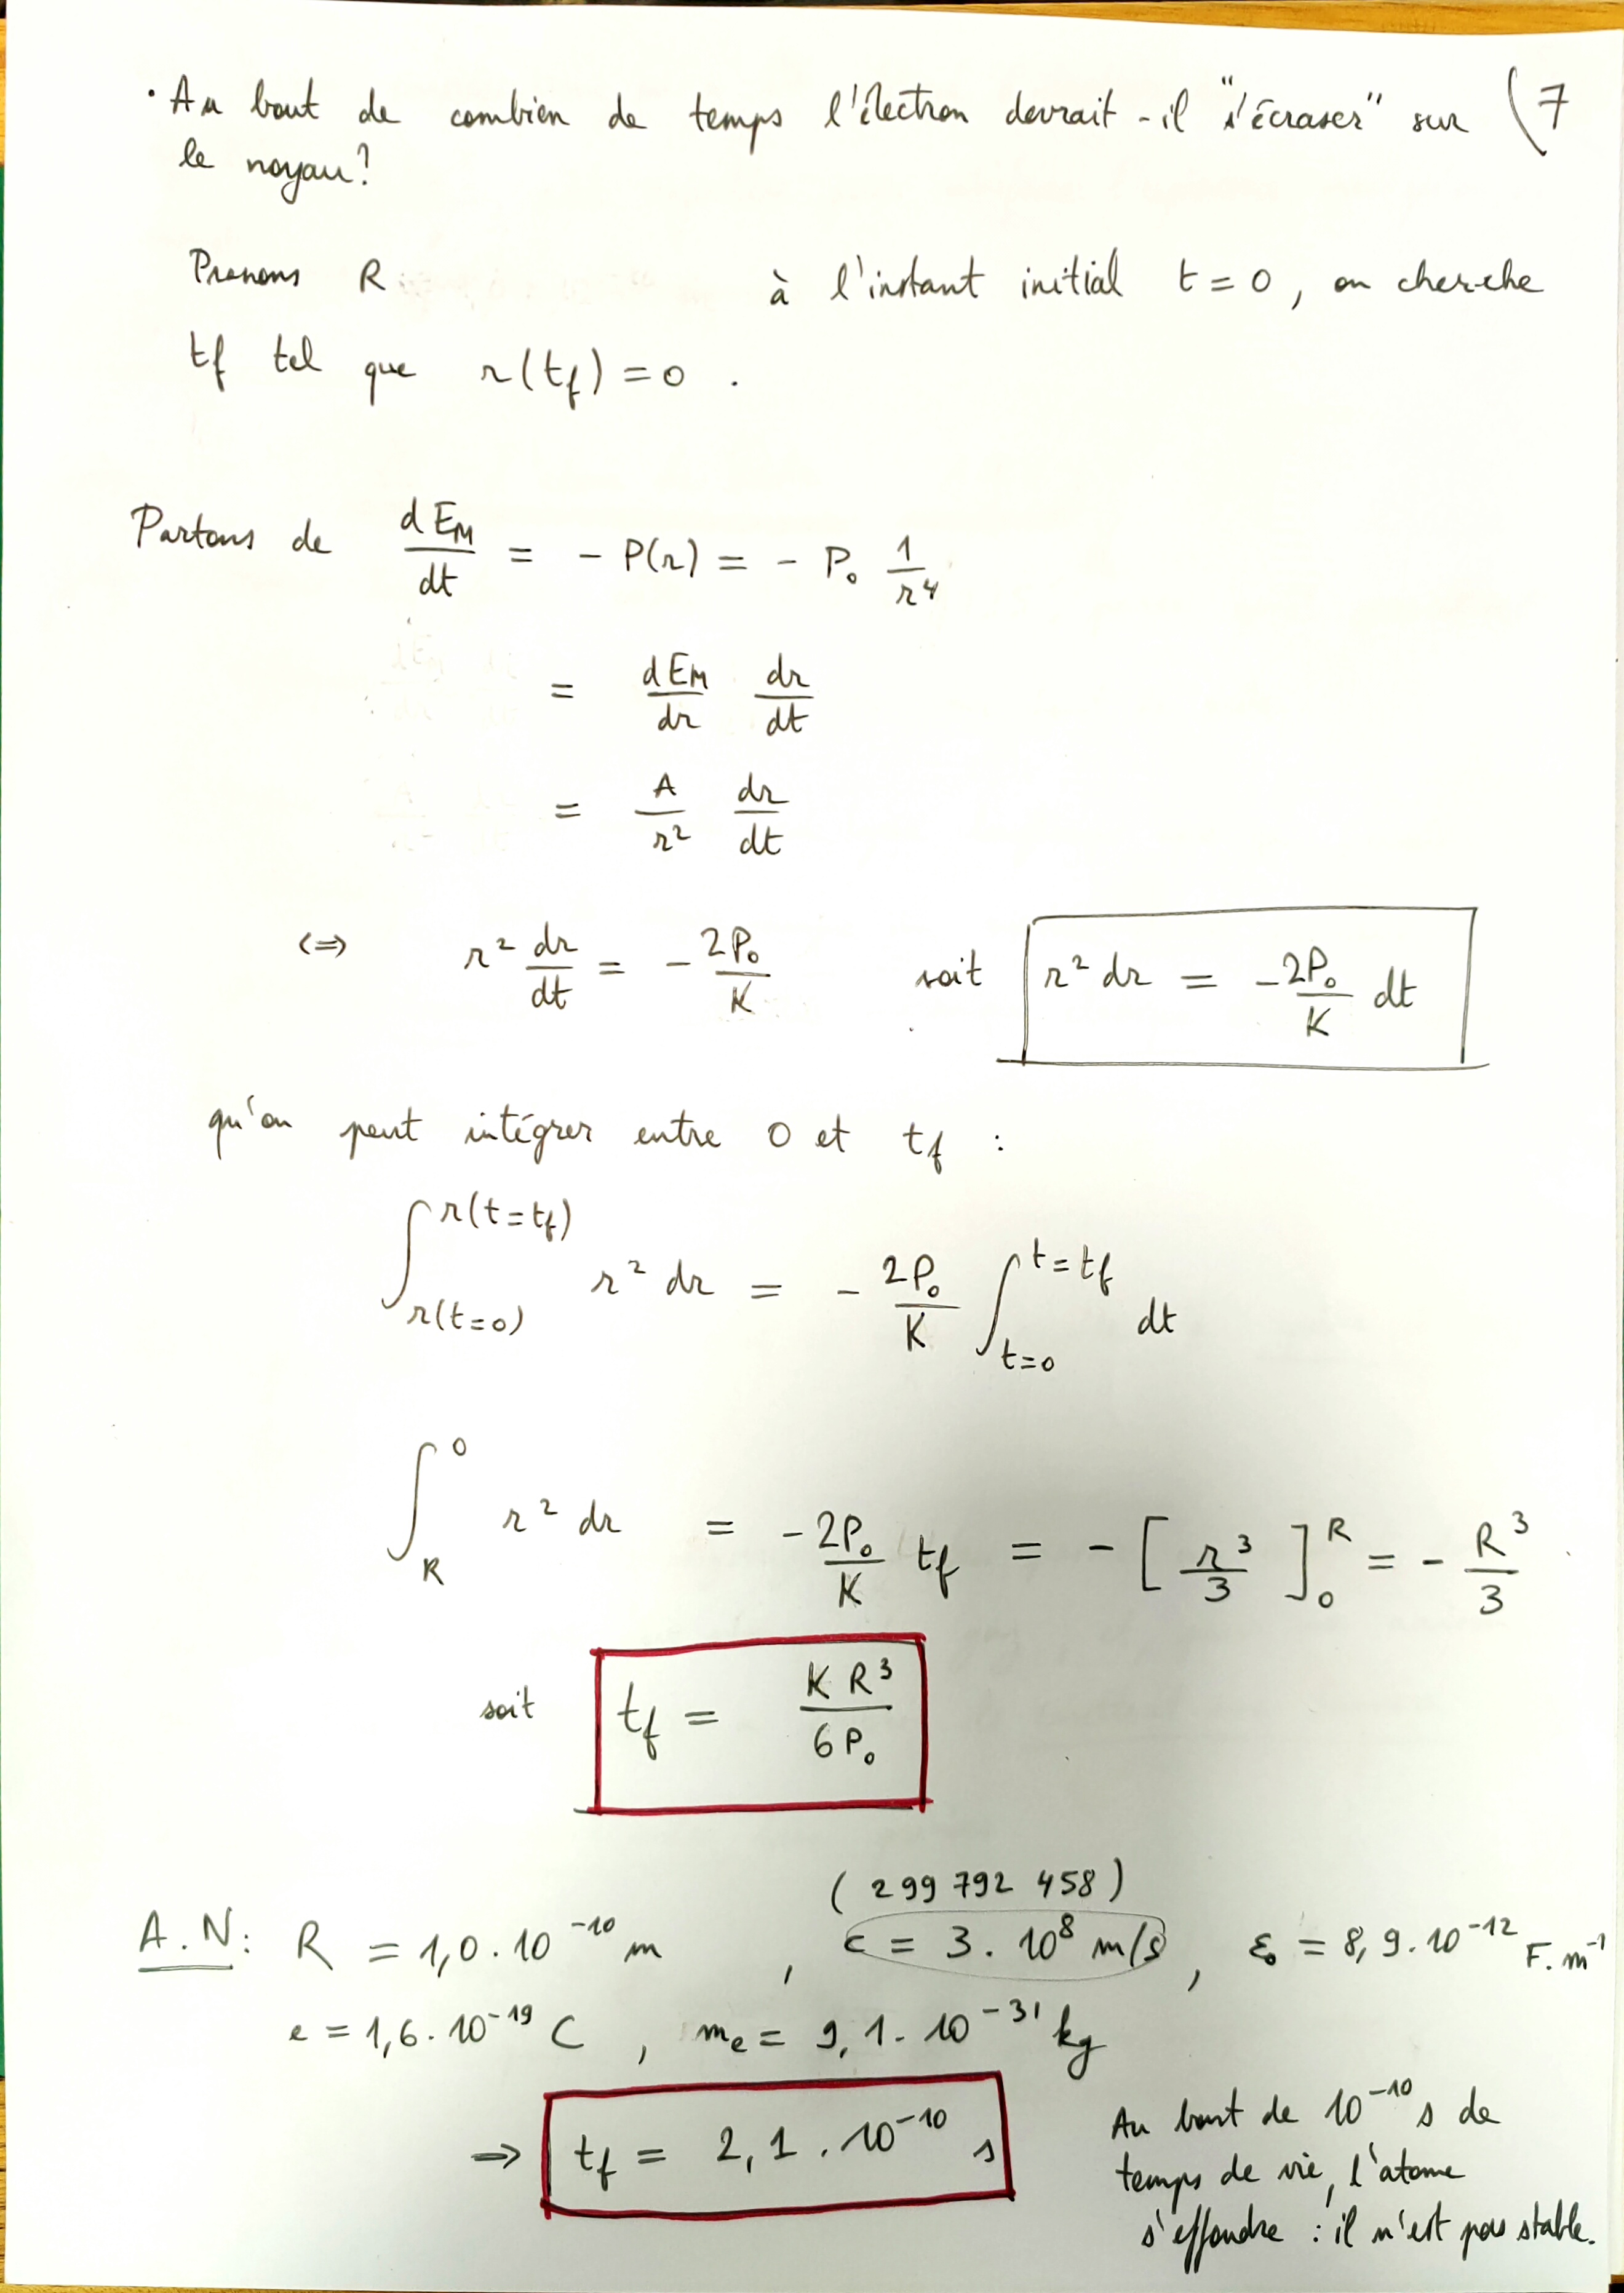 • Au bout de combien de temps l'électron devrait-il "s'écraser" sur (7
le noyau?
Prenons R à l'instant initial t = 0, on cherche
tf tel que r(tf) = 0 .
Partons de dEM/dt = - P(r) = - P₀ 1/r⁴
= dEM/dr dr/dt
= A/r² dr/dt
<=> r² dr/dt = - 2P₀/K soit r² dr = - 2P₀/K dt
qu'on peut intégrer entre 0 et tf :
∫_{r(t=0)}^{r(t=tf)} r² dr = - 2P₀/K ∫_{t=0}^{t=tf} dt
∫_R^0 r² dr = - 2P₀/K tf = - [r³/3]_0^R = - R³/3
soit tf = K R³/6P₀
(299 792 458)
A.N: R = 1,0.10⁻¹⁰ m , c = 3. 10⁸ m/s , ε₀ = 8,9.10⁻¹² F.m⁻¹
e = 1,6.10⁻¹⁹ C , me = 9,1.10⁻³¹ kg
=> tf = 2,1 . 10⁻¹⁰ s
Au bout de 10⁻¹⁰ s de
temps de vie, l'atome
s'effondre : il n'est pas stable.